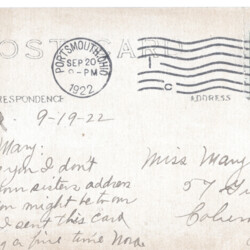 POST CARD
PORTSMOUTH, OHIO
SEP 20
-PM
1922
RESPONDENCE
ADDRESS
9-19-22
Mary:
you I don't
sister address
you might be to our
I sent this Card
a fine time Nora
Miss Mary
57
Colum